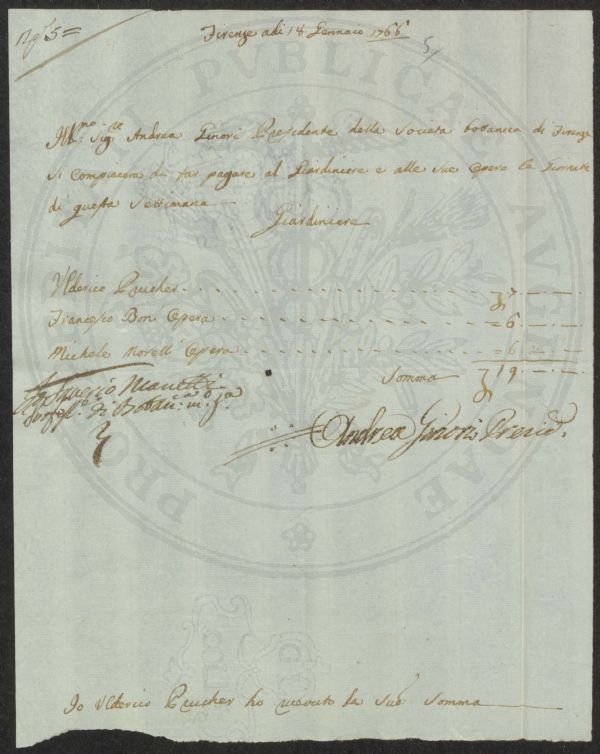 N.º 5 =
Firenze adi 18 Gennaio 1766
5
Ill.mo Sig.re Andrea Ginori Presidente della Società bottanica di Firenze
si compiacerà di far pagare al Giardiniere e alle sue Opere le Giornate
di questa Settimana
Giardiniere
Ulderico Prucher - - - - 7. — — .
Francesco Boni Opera - - - - = 6. — — .
Michele Morelli Opera - - - - = 6. — — .
Somma 19. — — .
Saverio Manetti
Profes.e di Bottan.ca
Andrea Ginori Presid.
Io Ulderico Prucher ho riceuto la sud.a Somma
PUBLICAE